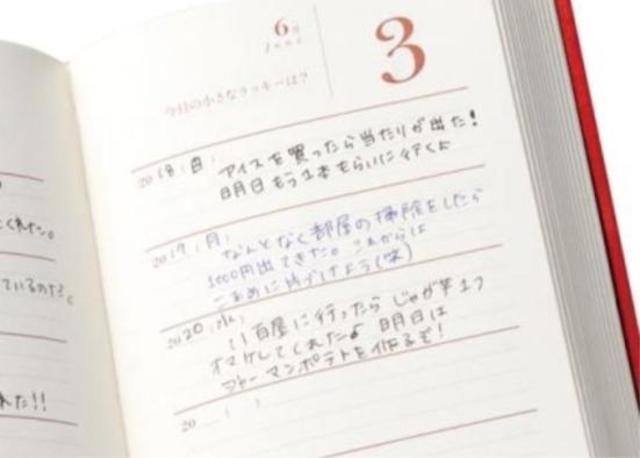 6月
June
3
今日の小さなラッキーは?
2018(日)
アイスを買ったら当たりが出た!
明日もう1本もらいに行くよ
2019(月)
なんとなく部屋の掃除をしたら
1000円出てきた。これからは
こまめに片づけよう(笑)
2020(水)
八百屋に行ったらじゃが芋1つ
オマケしてくれた 明日は
ジャーマンポテトを作るぞ!
20 ( )
くれた。
ているのだ。
れた!!